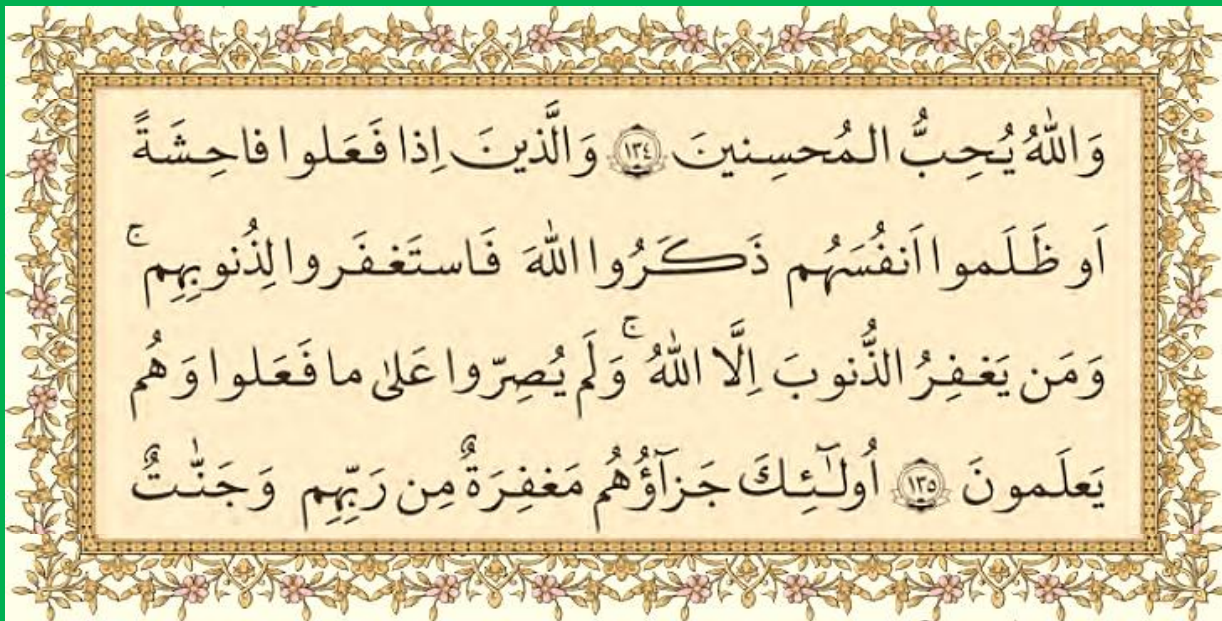 وَاللّٰهُ يُحِبُّ المُحسِنينَ ﴿١٣٤﴾ وَالَّذينَ اِذا فَعَلوا فاحِشَةً
اَو ظَلَموا اَنفُسَهُم ذَكَرُوا اللّٰهَ فَاستَغفَروا لِذُنوبِهِم ۚ
وَمَن يَغفِرُ الذُّنوبَ اِلَّا اللّٰهُ ۚ وَلَم يُصِرّوا عَلىٰ ما فَعَلوا وَهُم
يَعلَمونَ ﴿١٣٥﴾ اُولـٰٓئِكَ جَزآؤُهُم مَغفِرَةٌ مِن رَبِّهِم وَجَنّٰتٌ